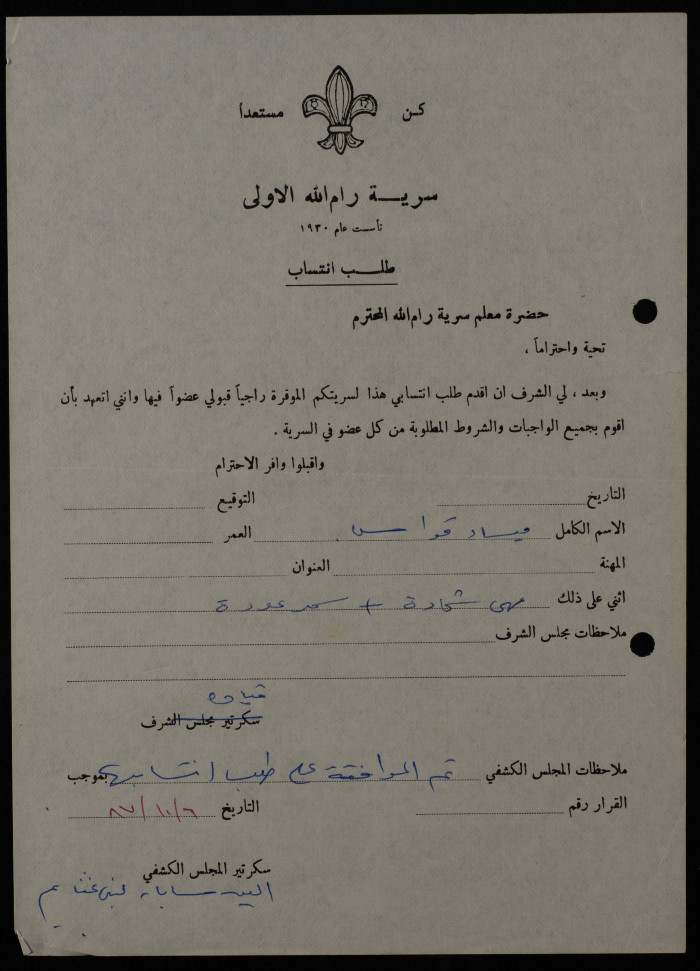 كن مستعداً
سرية رام الله الاولى
تأسست عام ١٩٣٠
طلب انتساب
حضرة معلم سرية رام الله المحترم
تحية واحتراماً ،
وبعد ، لي الشرف ان اقدم طلب انتسابي هذا لسريتكم الموقرة راجياً قبولي عضواً فيها وانني اتعهد بأن
اقوم بجميع الواجبات والشروط المطلوبة من كل عضو في السرية .
واقبلوا وافر الاحترام
التاريخ التوقيع
الاسم الكامل ميساء قواس العمر
المهنة العنوان
اثني على ذلك مهى شحادة + سمر عودة
ملاحظات مجلس الشرف
قيادة
سكرتير مجلس الشرف
ملاحظات المجلس الكشفي تم الموافقة على طلب انتسابها بموجب
القرار رقم التاريخ ٨٧/١٠/٦
سكرتير المجلس الكشفي
سابا لبنى غنايم